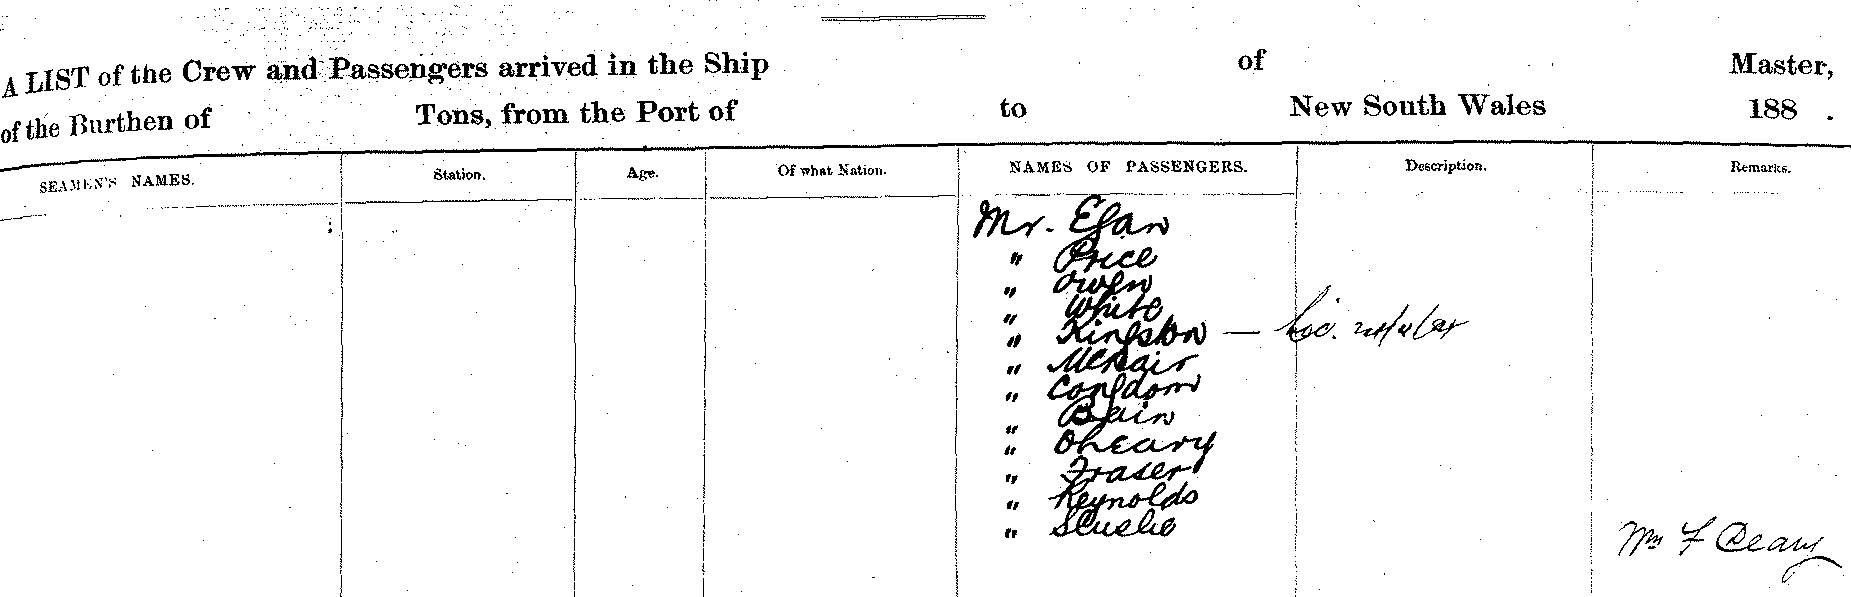 A LIST of the Crew and Passengers arrived in the Ship of Master,
of the Burthen of Tons, from the Port of to New South Wales 188 .
SEAMEN'S NAMES. Station. Age. Of what Nation. NAMES OF PASSENGERS. Description. Remarks.
Mr. Egan
" Price
" Owen
" White
" Kingston —
" McNair
" Congdom
" Bain
" OLeary
" Fraser
" Reynolds
"
Wm F Deary